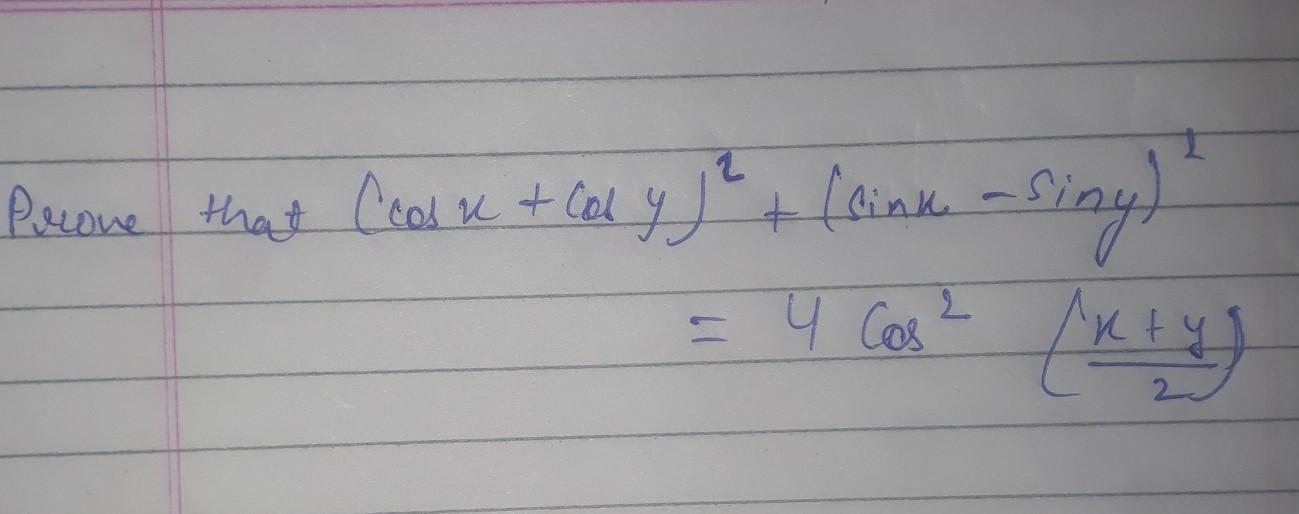 Prove that (cos x + cos y)² + (sin x - sin y)²
= 4 cos² (x + y / 2)